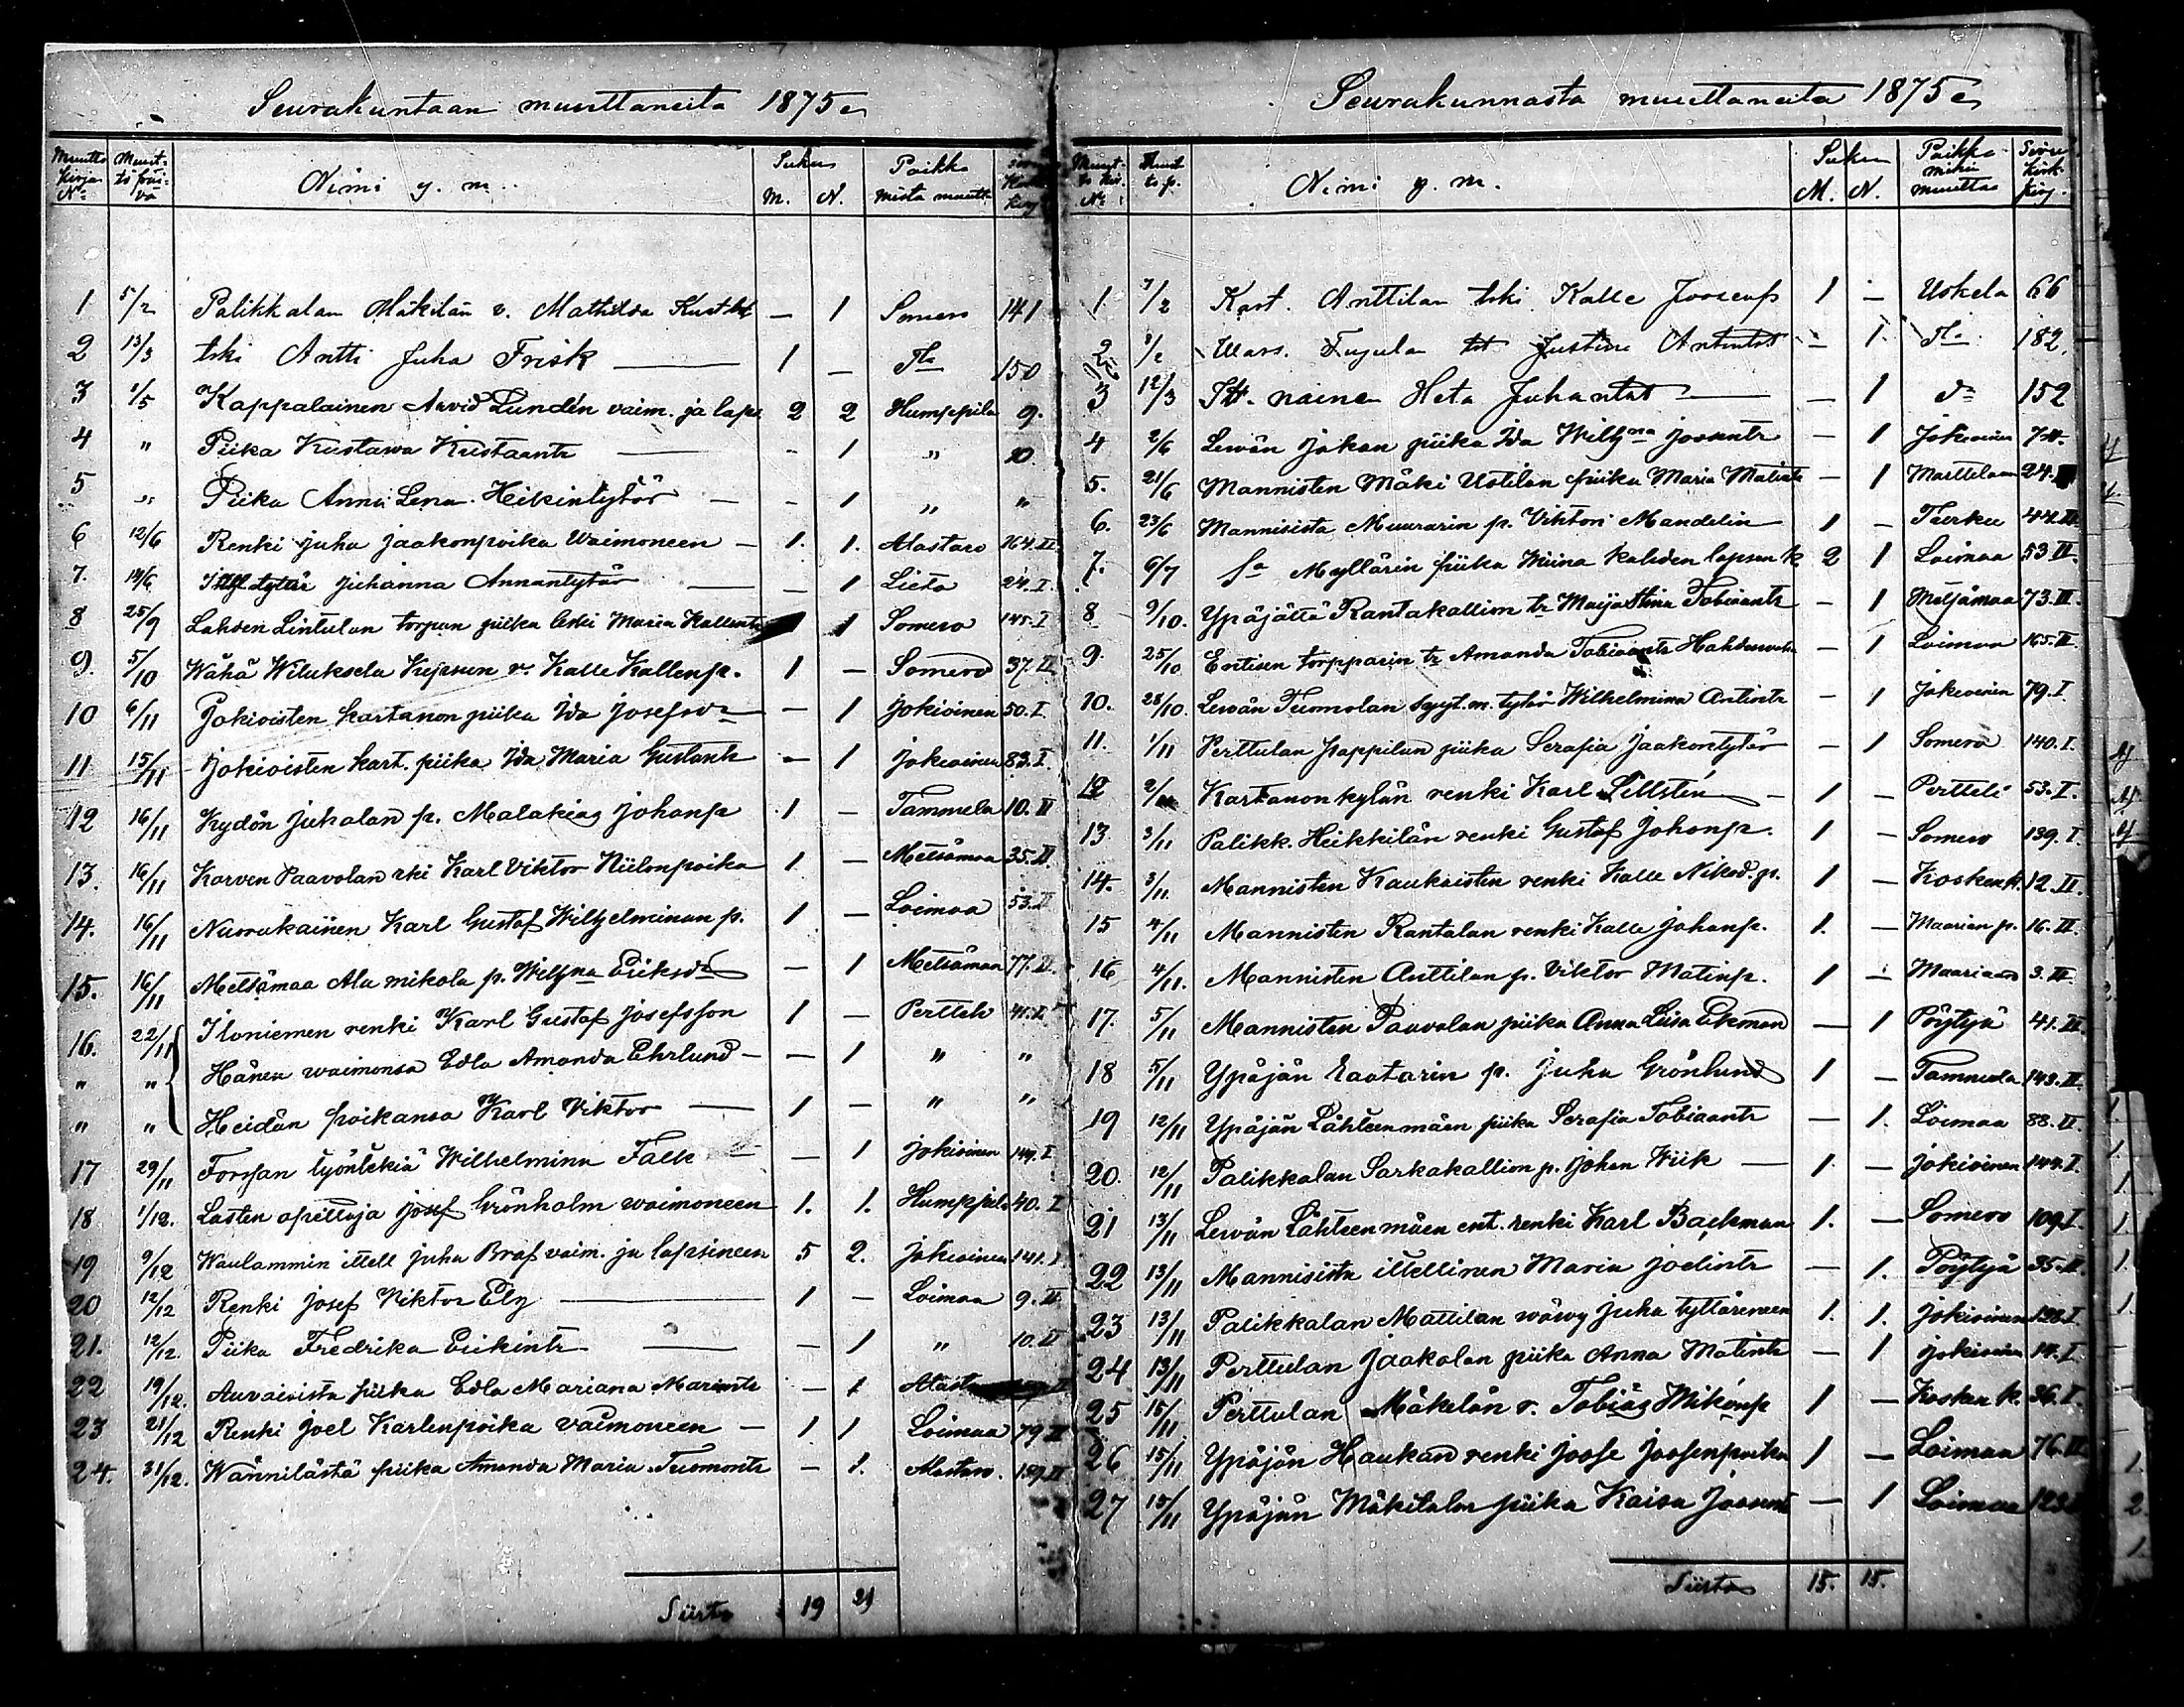 Seurakuntaan muuttaneita 1875
Muutto kirjan No Muut- to päi- vä Nimi y. m. Suku M. N. Paikka mista muutt.
1 5/2 Palikkalan Mäkilän v. Mathilda — 1 Somero 141
2 13/3 tski Antti Juha Frisk — 1 — 150
3 1/5 Kappalainen Arvid Lundén vaim. ja laps. 2 2 Humppila 9.
4 " Piika Kustawa Kustaantr — - 1 " 10.
5 " Piika Anna Lena Heikintytär — - 1 " "
6 12/6 Renki Juha Jaakonpoika Waimoneen — 1. 1. Alastaro 164.II
7. 14/6 Juhanna Annantytär — — 1 Lieto 24.I
8 25/9 Lahden Lintulan torpan piika leski Maria Kallentr 1 Somero 145.I
9. 5/10 Wähä Wiluksela Kepsun r. Kalle Kallenp. 1 — Somero 37.II
10 6/11 Jokioisten kartanon piika Ida Josefsdr — 1 Jokioinen 50.I
11 15/11 Jokioisten kart. piika Ida Maria Gustantr - 1 Jokioinen 83.I.
12 16/11 Kydön Juhalan p. Malakias Johanp 1 — Tammela 10.II
13. 16/11 Korven Paavolan rki Karl Viktor Niilonpoika 1 — Metsämaa 35.II
14. 16/11 Nuorukainen Karl Gustaf Wilhelminan p. 1 — Loimaa 53.II
15. 16/11 Metsämaa Ala mikola p. Wilhna Eriksdr — 1 Metsämaa 77.II
16. 22/11 Iloniemen renki Karl Gustaf Josefsson 1 — Pertteli 41.I
" " Hänen waimonsa Edla Amanda Ehrlund — — 1 " "
" " Heidän poikansa Karl Viktor — 1 — " "
17 29/11 Forssan työntekiä Wilhelmina Falk — — 1 Jokioinen 144.I
18 1/12. Lasten opettaja Josef Grönholm waimoneen 1. 1. Humppila 40.I
19 9/12 Kaulammin ittell Juha Braf vaim. ja lapsineen 5 2. Jokioinen 141.I
20 12/12 Renki Josef Viktor Ely — 1 — Loimaa 9.II
21. 12/12. Piika Fredrika Erikintr — — 1 " 10.II
22 19/12. Auvaisista piika Edla Mariana Mariantr — 1
23 21/12 Renki Joel Karlenpoika vaimoneen — 1 1 Loimaa 79.II
24. 31/12. Wännilästä piika Amanda Maria Tuomontr — 1. Alastaro. 159.II
Siirto 19 21
Seurakunnasta muuttaneita 1875
Muut- to kir. No Muut to p. Nimi y. m. Suku M. N. Paikka mihin muuttaa
1 7/2 Kart. Anttilan tski Kalle Joosenp 1 — Uskela 66
2 9/2 Justina Antintr — 1. 182.
3 12/3 Itt. nainen Heta Juhantr — — 1 152
4 2/6 Lewän Jokan piika Ida Wilhna Joosentr — 1 Jokioinen 74.
5. 21/6 Mannisten Mäki Ustilan piika Maria Matintr — 1 Marttelaan 24.
6. 23/6 Mannisista Muurarin p. Viktori Mandelin 1 - Turku 44.II
7. 6/7 Sa Myllärin piika Miina kahden lapsen k 2 1 Loimaa 53 II.
8 9/10. Ypäjältä Rantakallion tr Maija Stina Tobiaantr — 1 Metsämaa 73.II.
9. 25/10 Entisen torpparin tr Amanda Tobiaantr — 1 Loimaa 165.II.
10. 28/10. Lewän Tuomolan tytär Wilhelmina Antintr — 1 Jokioinen 79.I
11. 1/11 Perttulan pappilan piika Serafia Jaakontytär — 1 Somero 140.I.
12 2/11 Kartanonkylän renki Karl Lillstén — 1 — Pertteli 53.I.
13. 3/11 Palikk. Heikkilän renki Gustaf Johanp. 1 — Somero 139.I.
14. 3/11. Mannisten Kaukoisten renki Kalle Nikod. p. 1 — Koskenk. 12.II.
15 4/11 Mannisten Rantalan renki Kalle Johanp. 1. — Maarian p. 16.II.
16 4/11. Mannisten Anttilan p. Viktor Matinp. 1 — Maariaan 3.II.
17. 5/11 Mannisten Paavolan piika Anna Liisa Ekman — 1 Pöytyä 41.II
18 5/11 Ypäjän Raatarin p. Juha Grönlund 1 — Tammela 143.II
19 12/11 Ypäjän Lähteenmäen piika Serafia Tobiaantr — 1. Loimaa 88.II
20. 12/11 Palikkalan Sarkakallion p. Johan Wiik — 1. — Jokioinen 144.I
21 13/11 Lewän Lähteenmäen ent. renki Karl Backman 1. — Somero 109.I
22 13/11 Mannisista ittellinen Maria Joelintr — 1. Pöytyä 35.II.
23 13/11 Palikkalan Mattilan wäwy Juha tyttäreneen 1. 1. Jokioinen 128.I
24 13/11 Perttulan Jaakolan piika Anna Matintr — 1 Jokioinen 14.I
25 15/11 Perttulan Mäkelän r. Tobias Mikonp 1 — Kosken k. 36.I.
26 15/11 Ypäjän Haukan renki Joose Joosenpoika 1 — Loimaa 76.II
27 15/11 Ypäjän Mäkitalon piika Kaisa Joosentr — 1 Loimaa 123.
Siirto 15. 15.